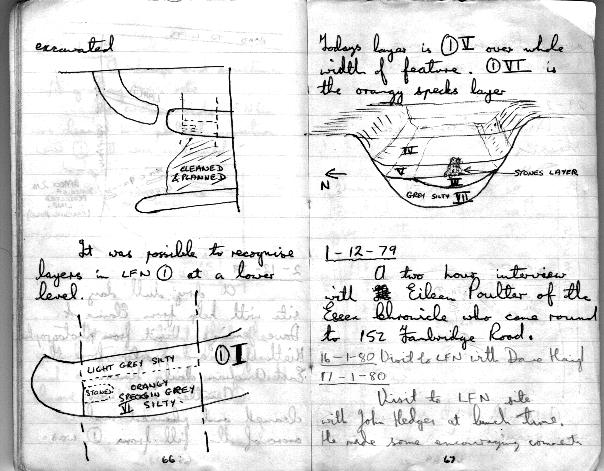 excavated
CLEANED
& PLANNED
It was possible to recognise
layers in LFN ① at a lower
level.
LIGHT GREY SILTY
① I
STONES
ORANGY
SPECKS IN GREY
VI SILTY
66
Todays layer is ① V over whole
width of feature. ① VI is
the orangy specks layer
IV
V
STONES LAYER
N
VI
GREY SILTY VII
1-12-79
A two hour interview
with Eileen Poulter of the
Essex Chronicle who came round
to 152 Fambridge Road.
16-1-80 Visit to LFN with Dave
17-1-80
Visit to LFN site
with John Hedges at lunch time.
He made some encouraging comments
67